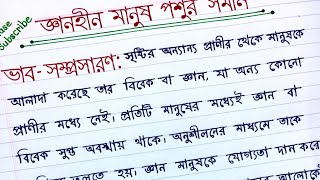 জ্ঞানহীন মানুষ পশুর সমান
Subscribe
ভাব-সম্প্রসারণ: সৃষ্টির অন্যান্য প্রাণীর থেকে মানুষকে
আলাদা করেছে তার বিবেক বা জ্ঞান, যা অন্য কোনো
প্রাণীর মধ্যে নেই। প্রতিটি মানুষের মধ্যেই জ্ঞান বা
বিবেক সুপ্ত অবস্থায় থাকে। অনুশীলনের মাধ্যমে তাকে
হয়। জ্ঞান মানুষকে যোগ্যতা দান করে